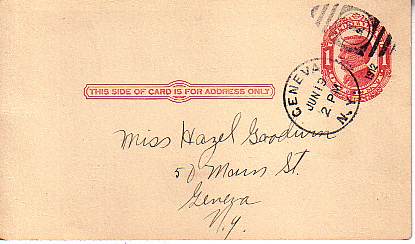 GENEVA
JUN 13
2 PM
1912
N.Y.
1
1
THIS SIDE OF CARD IS FOR ADDRESS ONLY
Miss Hazel Goodwin
50 Main St.
Geneva
N.Y.